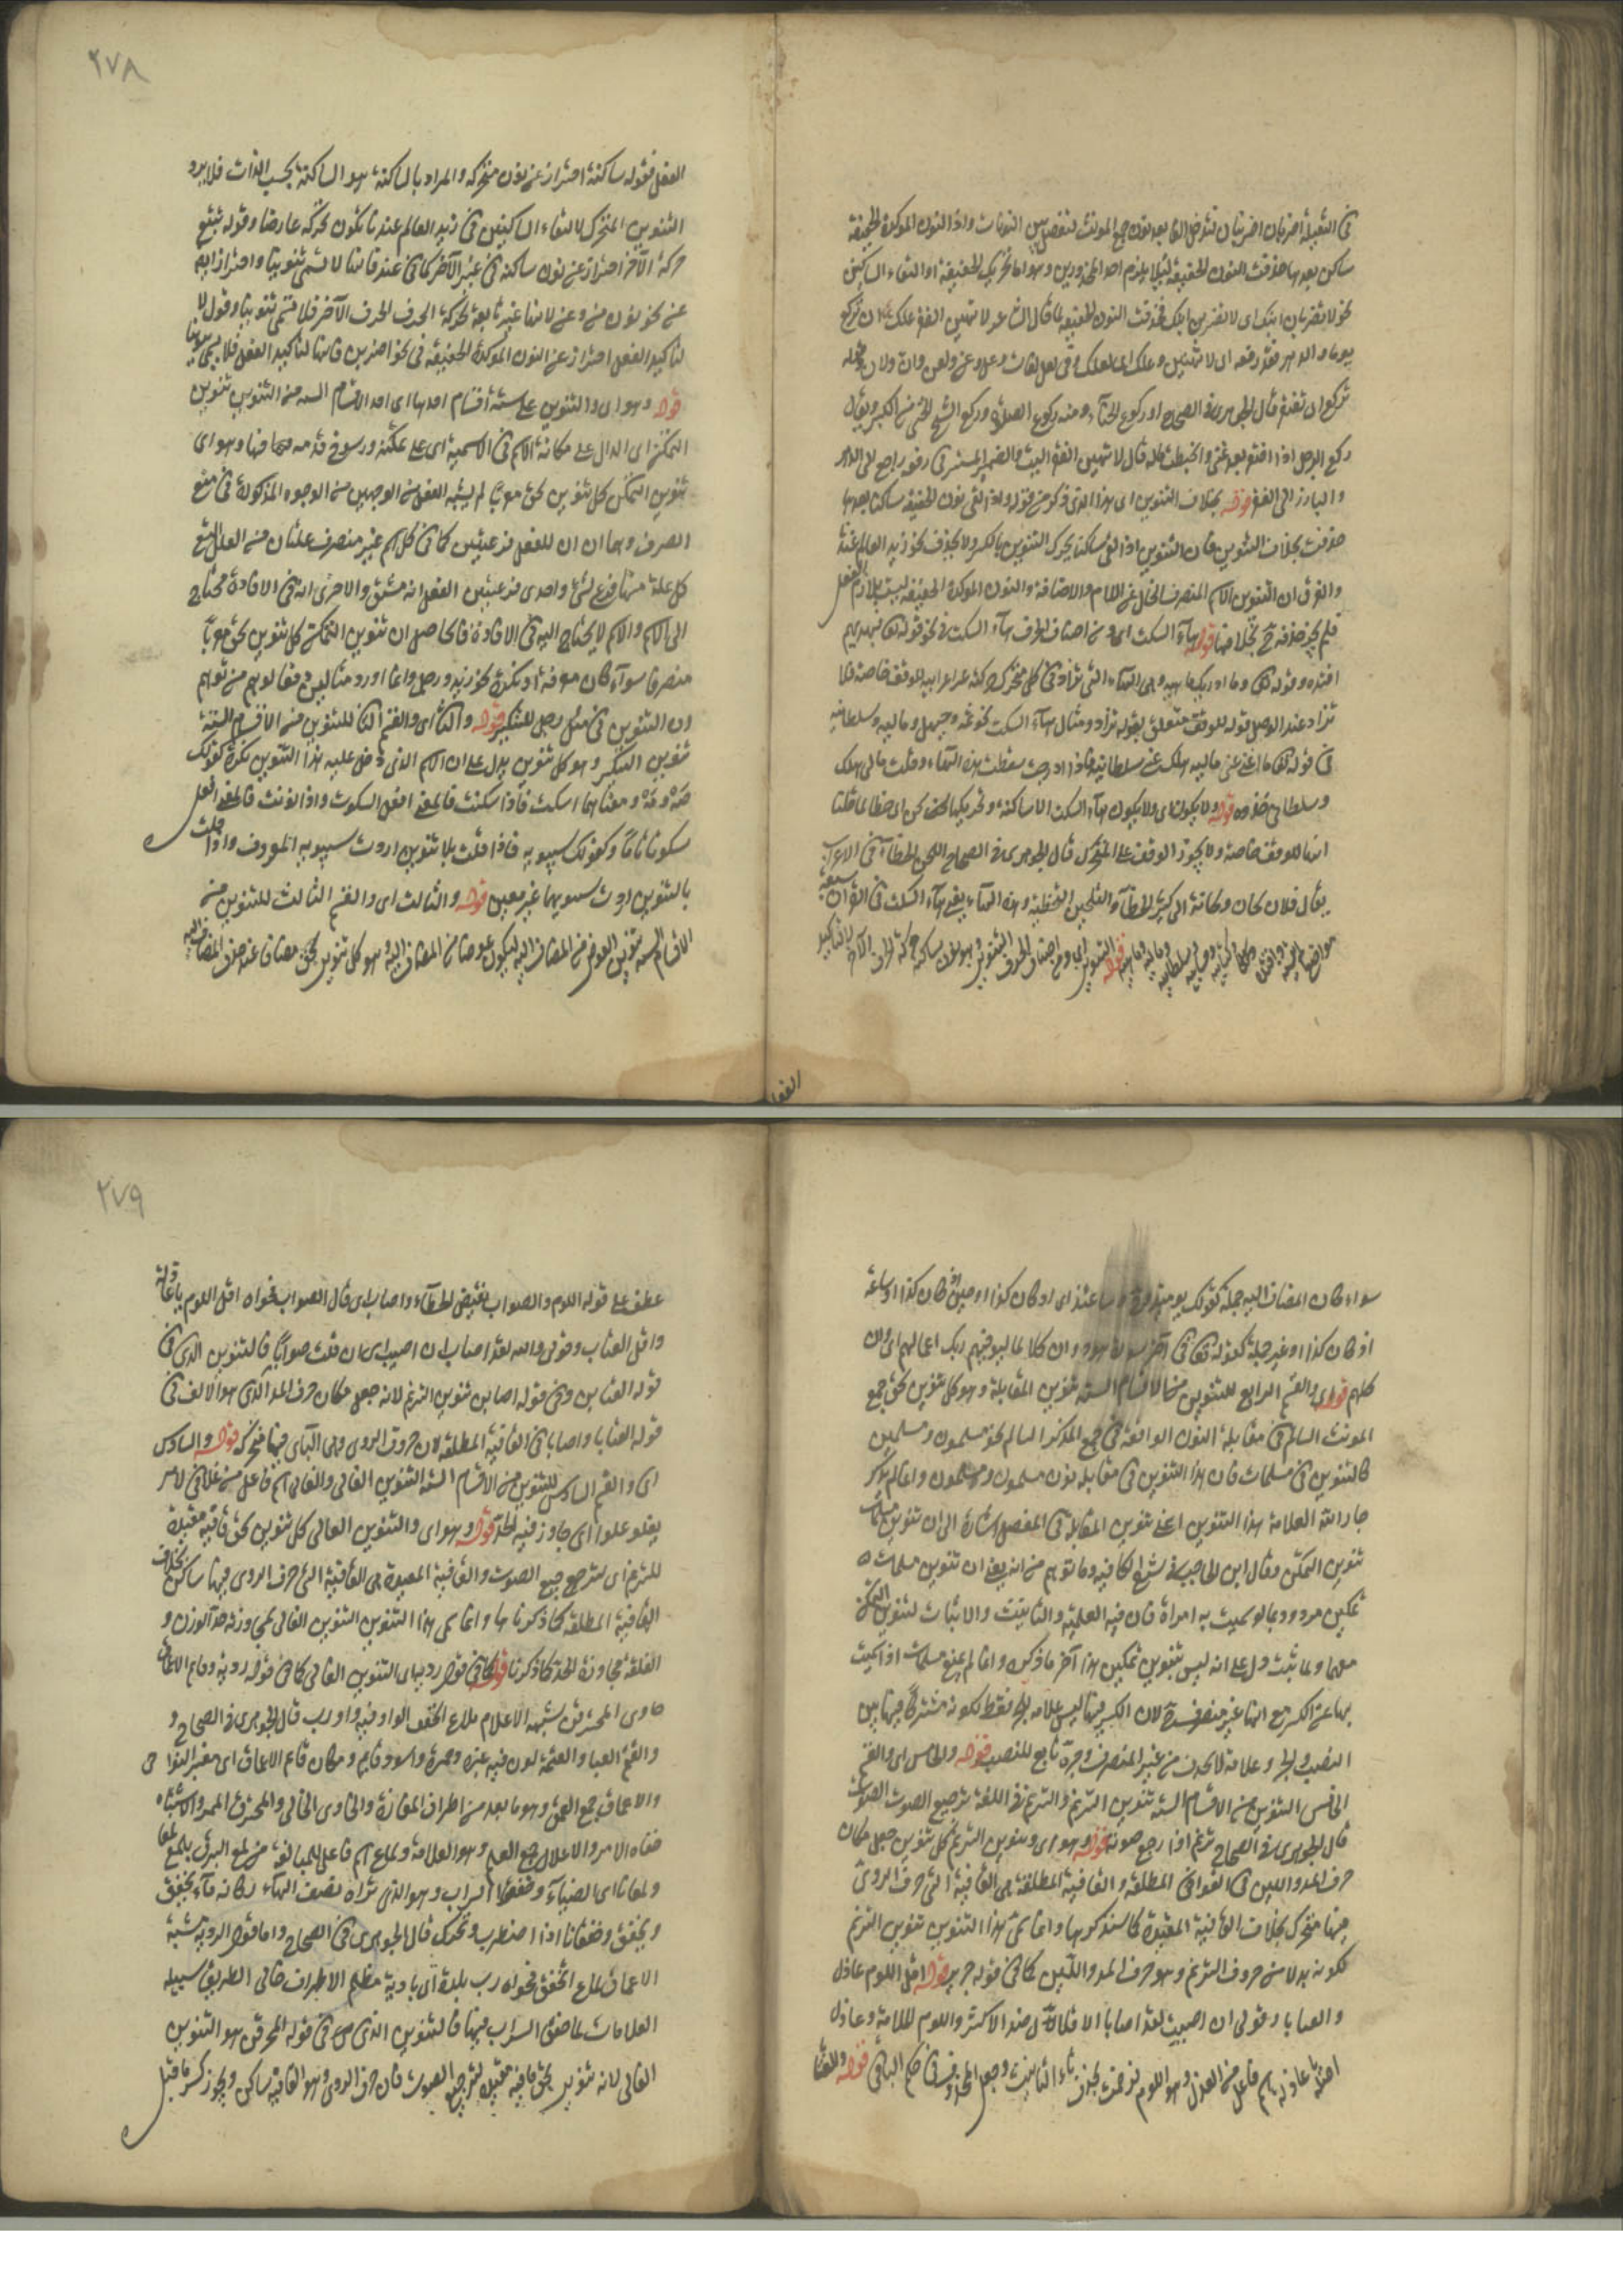 في الثقيلة اضربان اضربنان فتدخل الفا بعد نون جمع المونث لتفصل بين النونات واذا النون الموكدة الخفيفة
ساكن بعدها حذفت النون الخفيفة ليلا يلزم احد المحذورين وهو اما تحريك الخفيفة او التقاء الساكنين
نحو لا تضربان ابنك اى لا تضربن ابنك فحذفت النون الخفيفة كما قال الشاعر لا تهين الفقير علك ان تركع
يوما والدهر قد رفعه اى لا تهينن وعلك اى لعلك وفى لعل لغات وعل وعن ولعن وان ولان
تركع ان تفتقر قال الجوهرى فى الصحاح الركوع الانحناء ومنه ركوع الصلوة وركع الشيخ انحنى من الكبر ويقال
ركع الرجل اذا افتقر بعد غنى وانحطت حاله قال لا تهين الفقير البيت والضمير المستتر فى رفعه راجع الى الدهر
والبارز الى الفقير قوله بخلاف التنوين اى هذا الذى ذكر من قوله واذا لقى نون الخفيفة ساكنا بعدها
حذفت بخلاف التنوين فان التنوين اذا لقى ساكنا يحرك التنوين بالكسر ولا يحذف نحو زيد العالم عندنا
والفرق ان التنوين لازم للاسم المتصرف الخالى عن اللام والاضافة والنون الموكدة الخفيفة ليست بلازم للفعل
فلم يجز حذفه بخلافها قوله هاء السكت اى ومن اصناف الحرف هاء السكت فى نحو قوله تعالى فبهديهم
اقتده وقوله تعالى وما ادريك ما هيه وهى الهاء التى تزاد فى كل متحرك حركته غير اعرابية للوقف خاصة فلا
تزاد عند الوصل قوله للوقف متعلق بقوله تزاد ومثال هاء السكت نحو ثمه وحيهله وماليه وسلطانيه
فى قوله تعالى ما اغنى عنى ماليه هلك عنى سلطانيه فاذا ادرجت سقطت هذه الهاء وقلت مالى هلك
وسلطانى خذوه قوله ولا يكون اى ولا يكون هاء السكت الا ساكنة وتحريكها لحن اى خطأ لما قلنا
انها للوقف خاصة ولا يجوز الوقف على المتحرك قال الجوهرى فى الصحاح اللحن الخطأ فى الاعراب
يقال فلان لحان ولحانة اى كثير الخطاء والتلحين التخطية وهذه الهاء يعنى هاء السكت فى القرآن سبعة
مواضع لم يتسنه واقتده وكتابيه وحسابيه وسلطانيه وماليه وماهيه قوله التنوين اى ومن اصناف الحرف التنوين وهو نون ساكنة تتبع حركة الحرف الآخر لا لتاكيد
الفعل
٢٧٨
الفعل فقوله ساكنة احتراز عن نون متحركة والمراد بالساكنة هو الساكنة بحسب الذات فلا يرد
التنوين المتحرك لالتقاء الساكنين فى زيد العالم عندنا لكون تحركه عارضا وقوله تتبع
حركة الآخر احتراز عن نون ساكنة فى غير الآخر كما فى عند فانها لا تسمى تنوينا واحتراز ايضا
عن نحو نون من وعن لانها غير تابعة لحركة الحرف الآخر فلا تسمى تنوينا وقوله لا
لتاكيد الفعل احتراز عن النون الموكدة الخفيفة فى نحو اضربن فانها لتاكيد الفعل فلا يسمى تنوينا
قوله وهو اى والتنوين على ستة اقسام احدها اى احد الاقسام الستة من التنوين تنوين
التمكن اى الدال على مكانة الاسم فى الاسمية اى على تمكنه ورسوخ قدمه فيها وهو اى
تنوين التمكن كل تنوين لحق معربا لم يشبه الفعل من الوجهين من الوجوه المذكورة فى منع
الصرف وهما ان للفعل فرعيتين كما فى كل اسم غير منصرف علتان من العلل التسع
كل علة منهما فرع لشىء واحدى فرعيتين الفعل انه مشتق والاخرى انه فى الافادة محتاج
الى الاسم والاسم لا يحتاج اليه فى الافادة فالحاصل ان تنوين التمكن كل تنوين لحق معربا
منصرفا سواء كان معرفة او نكرة نحو زيد ورجل وانما اورد مثالين دفعا لوهم من توهم
ان التنوين فى مثل رجل للتنكير قوله والثانى اى والقسم الثانى للتنوين من الاقسام الستة
تنوين التنكير وهو كل تنوين يدل على ان الاسم الذى دخل عليه هذا التنوين نكرة كقولك
صه ومه ومعناهما اسكت فاذا سكنت فالمعنى افعل السكوت واذا نونت فالمعنى افعل
سكوتا تاما وكقولك سيبويه فاذا قلت بلا تنوين اردت سيبويه المعروف واذا قلت
بالتنوين اردت سيبويها غير معين قوله والثالث اى والقسم الثالث للتنوين من
الاقسام الستة تنوين العوض من المضاف اليه ليكون عوضا من المضاف اليه وهو كل تنوين لحق مضافا عند حذف المضاف اليه
سواء كان المضاف اليه جملة كقولك يومئذ وحينئذ وساعتئذ اى اذ كان كذا او حين اذ كان كذا او ساعة
اذ كان كذا او غير جملة كقوله تعالى فى آخر سورة هود وان كلا لما ليوفينهم ربك اعمالهم اى وان
كلهم قوله اى والقسم الرابع للتنوين من الاقسام الستة تنوين المقابلة وهو كل تنوين لحق جمع
المونث السالم فى مقابلة النون الواقعة فى جمع المذكر السالم نحو مسلمون ومسلمين
كالتنوين فى مسلمات فان هذا التنوين فى مقابلة نون مسلمون ومسلمون وانما لم يذكر
جار الله العلامة هذا التنوين اعنى تنوين المقابلة فى المفصل اشارة الى ان تنوين مسلمات
تنوين التمكن وقال ابن الحاجب فى شرح الكافية وما توهم من انه يعنى ان تنوين مسلمات
تمكين مردود بما لو سميت به امراة فان فيه العلمية والتانيث والاثبات لتنوين التمكن
معهما ولما ثبت دل على انه ليس بتنوين تمكين هذا آخر ما ذكره وانما لم يمنع مسلمات اذا سميت
بها عن الكسر مع انها غير منصرفة لان الكسر فيها ليس علامة الجر فقط لكونه مشتركا فيها بين
النصب والجر وعلامة لا تحذف من غير المنصرف وجره تابع للنصب قوله والخامس اى والقسم
الخامس التنوين من الاقسام الستة تنوين الترنم والترنم فى اللغة ترجيع الصوت
قال الجوهرى فى الصحاح ترنم اذا رجع صوته قوله وهو اى وتنوين الترنم كل تنوين جعل مكان
حرف المد واللين فى القوافى المطلقة والقافية المطلقة هى القافية التى حرف الروى
فيها متحرك بخلاف القافية المقيدة كما سنذكرها وانما سمى هذا التنوين تنوين الترنم
لكونه بدلا من حروف الترنم وهو حرف المد واللين كما فى قول جرير قوله اقلى اللوم عاذل
والعتابا وقولى ان اصبت لقد اصابا الاقلال ضد الاكثار واللوم الملامة وعاذل
اصله عاذلة اسم فاعل من العذل وهو اللوم فرخمت بحذف تاء التانيث وجعل المحذوف فى حكم الباقى قوله والعتابا
٢٧٩
عطف على قوله اللوم والصواب نقيض الخطاء واصاب اى قال الصواب فمعناه اقلى اللوم يا عاذلة
واقلى العتاب وقولى والله لقد اصاب ان اصبت اى ان قلت صوابا فالتنوين الذى فى
قوله العتابن وفى قوله اصابن تنوين الترنم لانه جعل مكان حرف المد الذى هو الالف فى
قوله العتابا واصابا فى القافية المطلقة لان حروف الروى وهى الباء فيها متحركة قوله والسادس
اى والقسم السادس للتنوين من الاقسام الستة التنوين الغالى والغالى اسم فاعل من غلا فى الامر
يغلو غلوا اى جاوز فيه الحد قوله وهو اى والتنوين الغالى كل تنوين لحق قافية مقيدة
للترنم اى لترجيع الصوت والقافية المقيدة هى القافية التى حرف الروى فيها ساكن بخلاف
القافية المطلقة كما ذكرناها وانما سمى هذا التنوين التنوين الغالى لمجاوزته حد الوزن و
الغلو مجاوزة الحد كما ذكرنا قوله كما فى قول رؤبة اى التنوين الغالى كما فى قوله رؤبة وقاتم الاعماق
خاوى المخترقن مشتبه الاعلام لماع الخفقن الواو فيه واو رب قال الجوهرى فى الصحاح
والقتام الغبار والقتمة لون فيه غبرة وحمرة واسود قاتم ومكان قاتم الاعماق اى مغبر النواحى
والاعماق جمع العمق وهو ما بعد من اطراف المفازة والخاوى الخالى والمخترق الممر والاشتباه
خفاء الامر والاعلام جمع العلم وهو العلامة ولماع اسم فاعل للمبالغة من لمع البرق يلمع لمعا
ولمعانا اى اضاء وخفق السراب وهو الذى تراه نصف النهار كانه ماء يخفق
ويخفق وخفقانا اذا اضطرب وتحرك قال الجوهرى فى الصحاح واما قول رؤبة مشتبه
الاعماق لماع الخفق فمعناه رب بلدة اى بادية مظلم الاطراف خالى الطريق سبيله
العلامات لماع السراب فيها فالتنوين الذى فى قوله المخترقن هو التنوين
الغالى لانه تنوين لحق قافية مقيدة لترجيع الصوت فان حرف الروى وهو القاف ساكن ويجوز كسر ما قبل